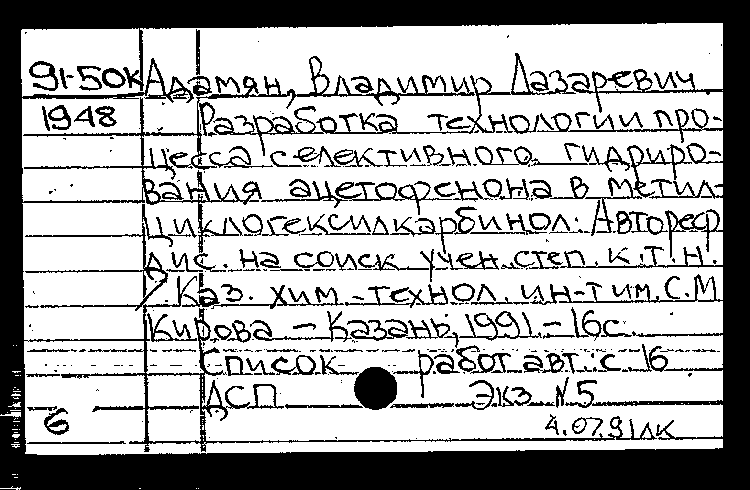 91-50к Адамян, Владимир Лазаревич.
1948 Разработка технологии про-
цесса селективного гидриро-
вания ацетофенона в метил-
циклогексилкарбинол: Автореф
дис. на соиск учен. степ. к.т.н.
/ Каз. хим.-технол. ин-т им. С.М
Кирова - Казань, 1991. - 16с.
Список работ авт.: с. 16
ДСП Экз N5
6 4.07.91лк